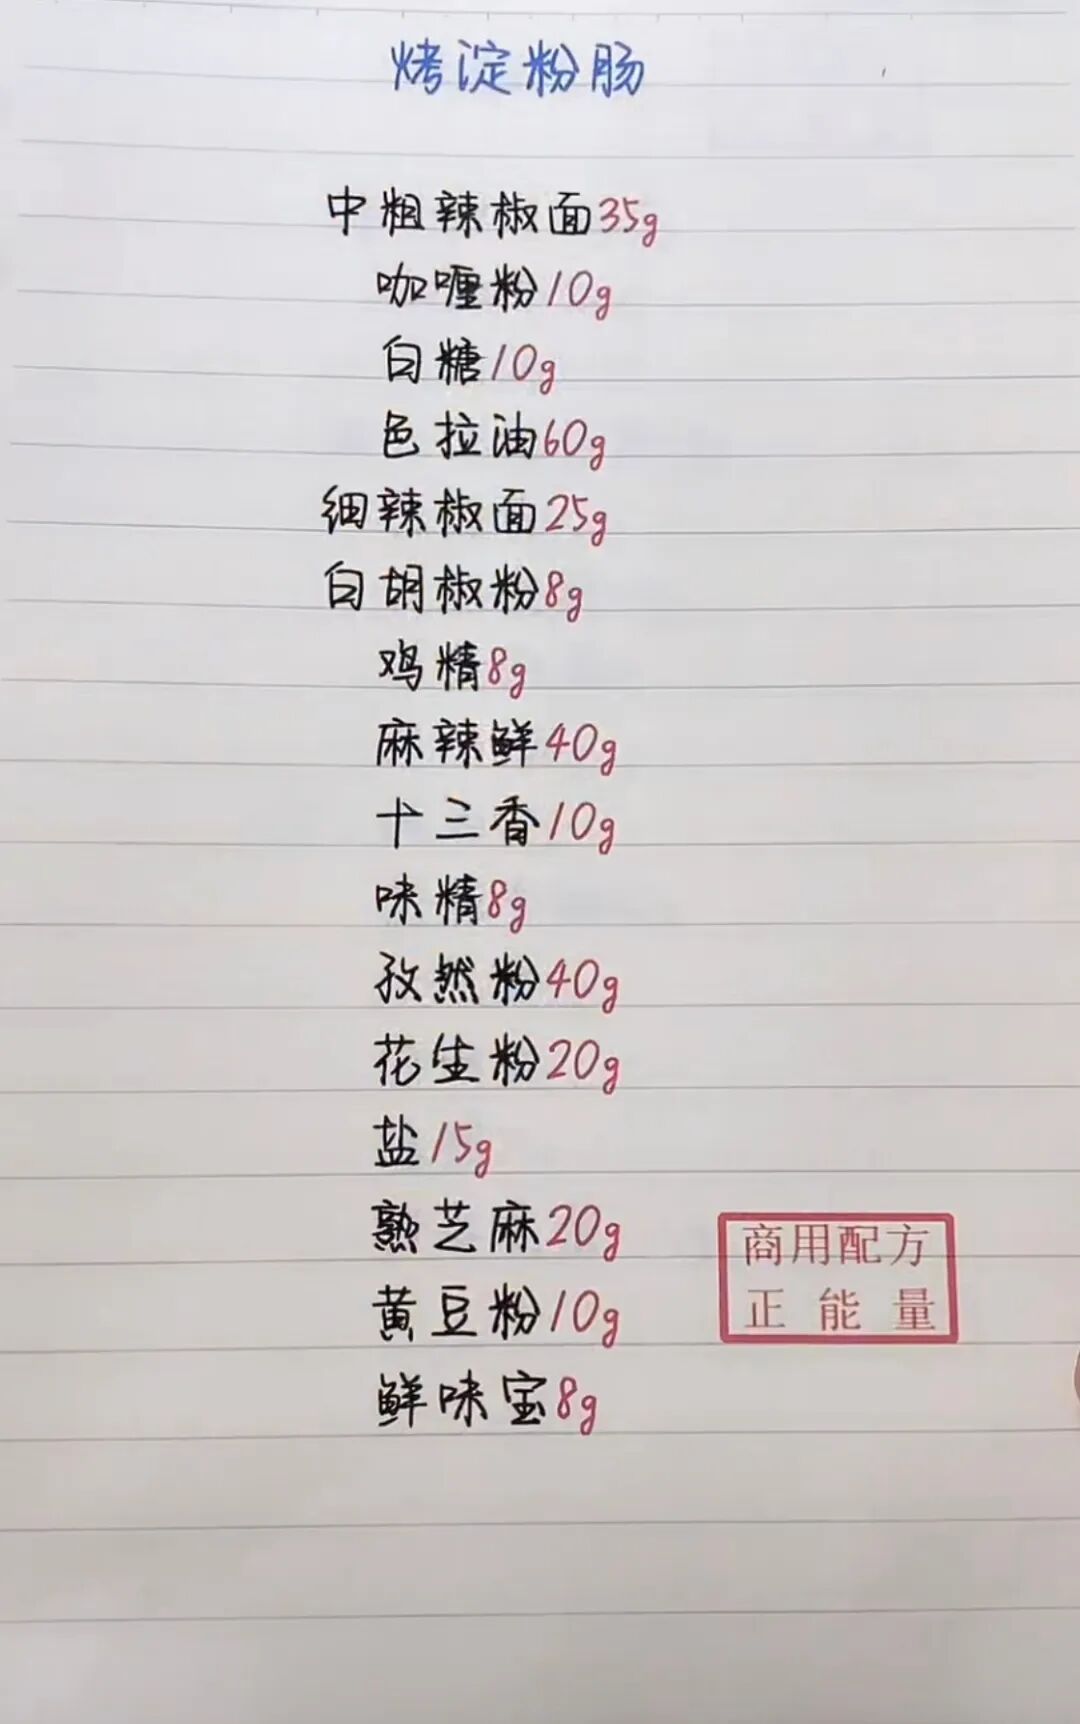 烤淀粉肠
中粗辣椒面35g
咖喱粉10g
白糖10g
色拉油60g
细辣椒面25g
白胡椒粉8g
鸡精8g
麻辣鲜40g
十三香10g
味精8g
孜然粉40g
花生粉20g
盐15g
熟芝麻20g
黄豆粉10g
鲜味宝8g
商用配方
正能量